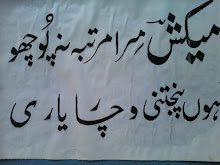 میکش مرا مرتبہ نہ پوچھو
ہوں پنجتنی و چار یاری